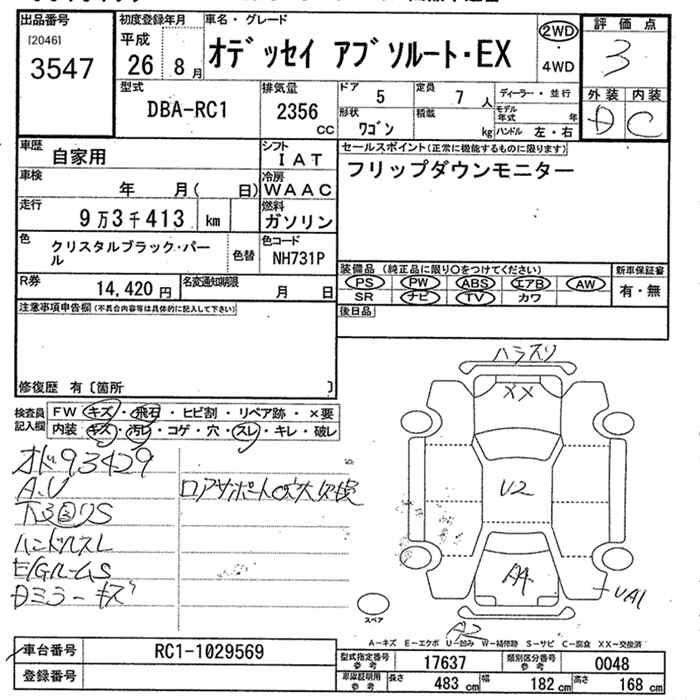 出品番号
[2046]
3547
初度登録年月
平成
26 8月
車名・グレード
オデッセイ アブソルート・EX
2WD
・
4WD
評価点
3
外装 内装
D C
型式
DBA-RC1
排気量
2356
cc
ドア
5
定員
7 人
形状
ワゴン
積載
kg
ディーラー・並行
モデル年式 年
ハンドル 左・右
車歴
自家用
シフト
IAT
車検
年 月( 日)
冷房
WAAC
走行
9万3千413 km
燃料
ガソリン
色
クリスタルブラック・パール
色替
色コード
NH731P
R券
14,420円
名変通知期限
月 日
セールスポイント(正常に機能するものに限ります)
フリップダウンモニター
装備品(純正品に限り〇をつけてください)
PS PW ABS エアB AW
SR ナビ TV カワ
新車保証書
有・無
後日品
注意事項申告欄(不具合内容等は具体的に記入して下さい)
修復歴 有〔箇所 〕
検査員記入欄
FW キズ・飛石・ヒビ割・リペア跡・×要
内装 キズ・汚レ・コゲ・穴・スレ・キレ・破レ
オド93429
A.U
下回りS
ハンドルスレ
E/GルームS
Dミラーキズ
ロアサポート
XX
U2
A4
UA1
A2
スペア
A-キズ E-エクボ U-凹み W-補修跡 S-サビ C-腐食 XX-交換済
車台番号
RC1-1029569
登録番号
型式指定番号 参考
17637
類別区分番号 参考
0048
車庫証明用 参考
長さ 483 cm 幅 182 cm 高さ 168 cm